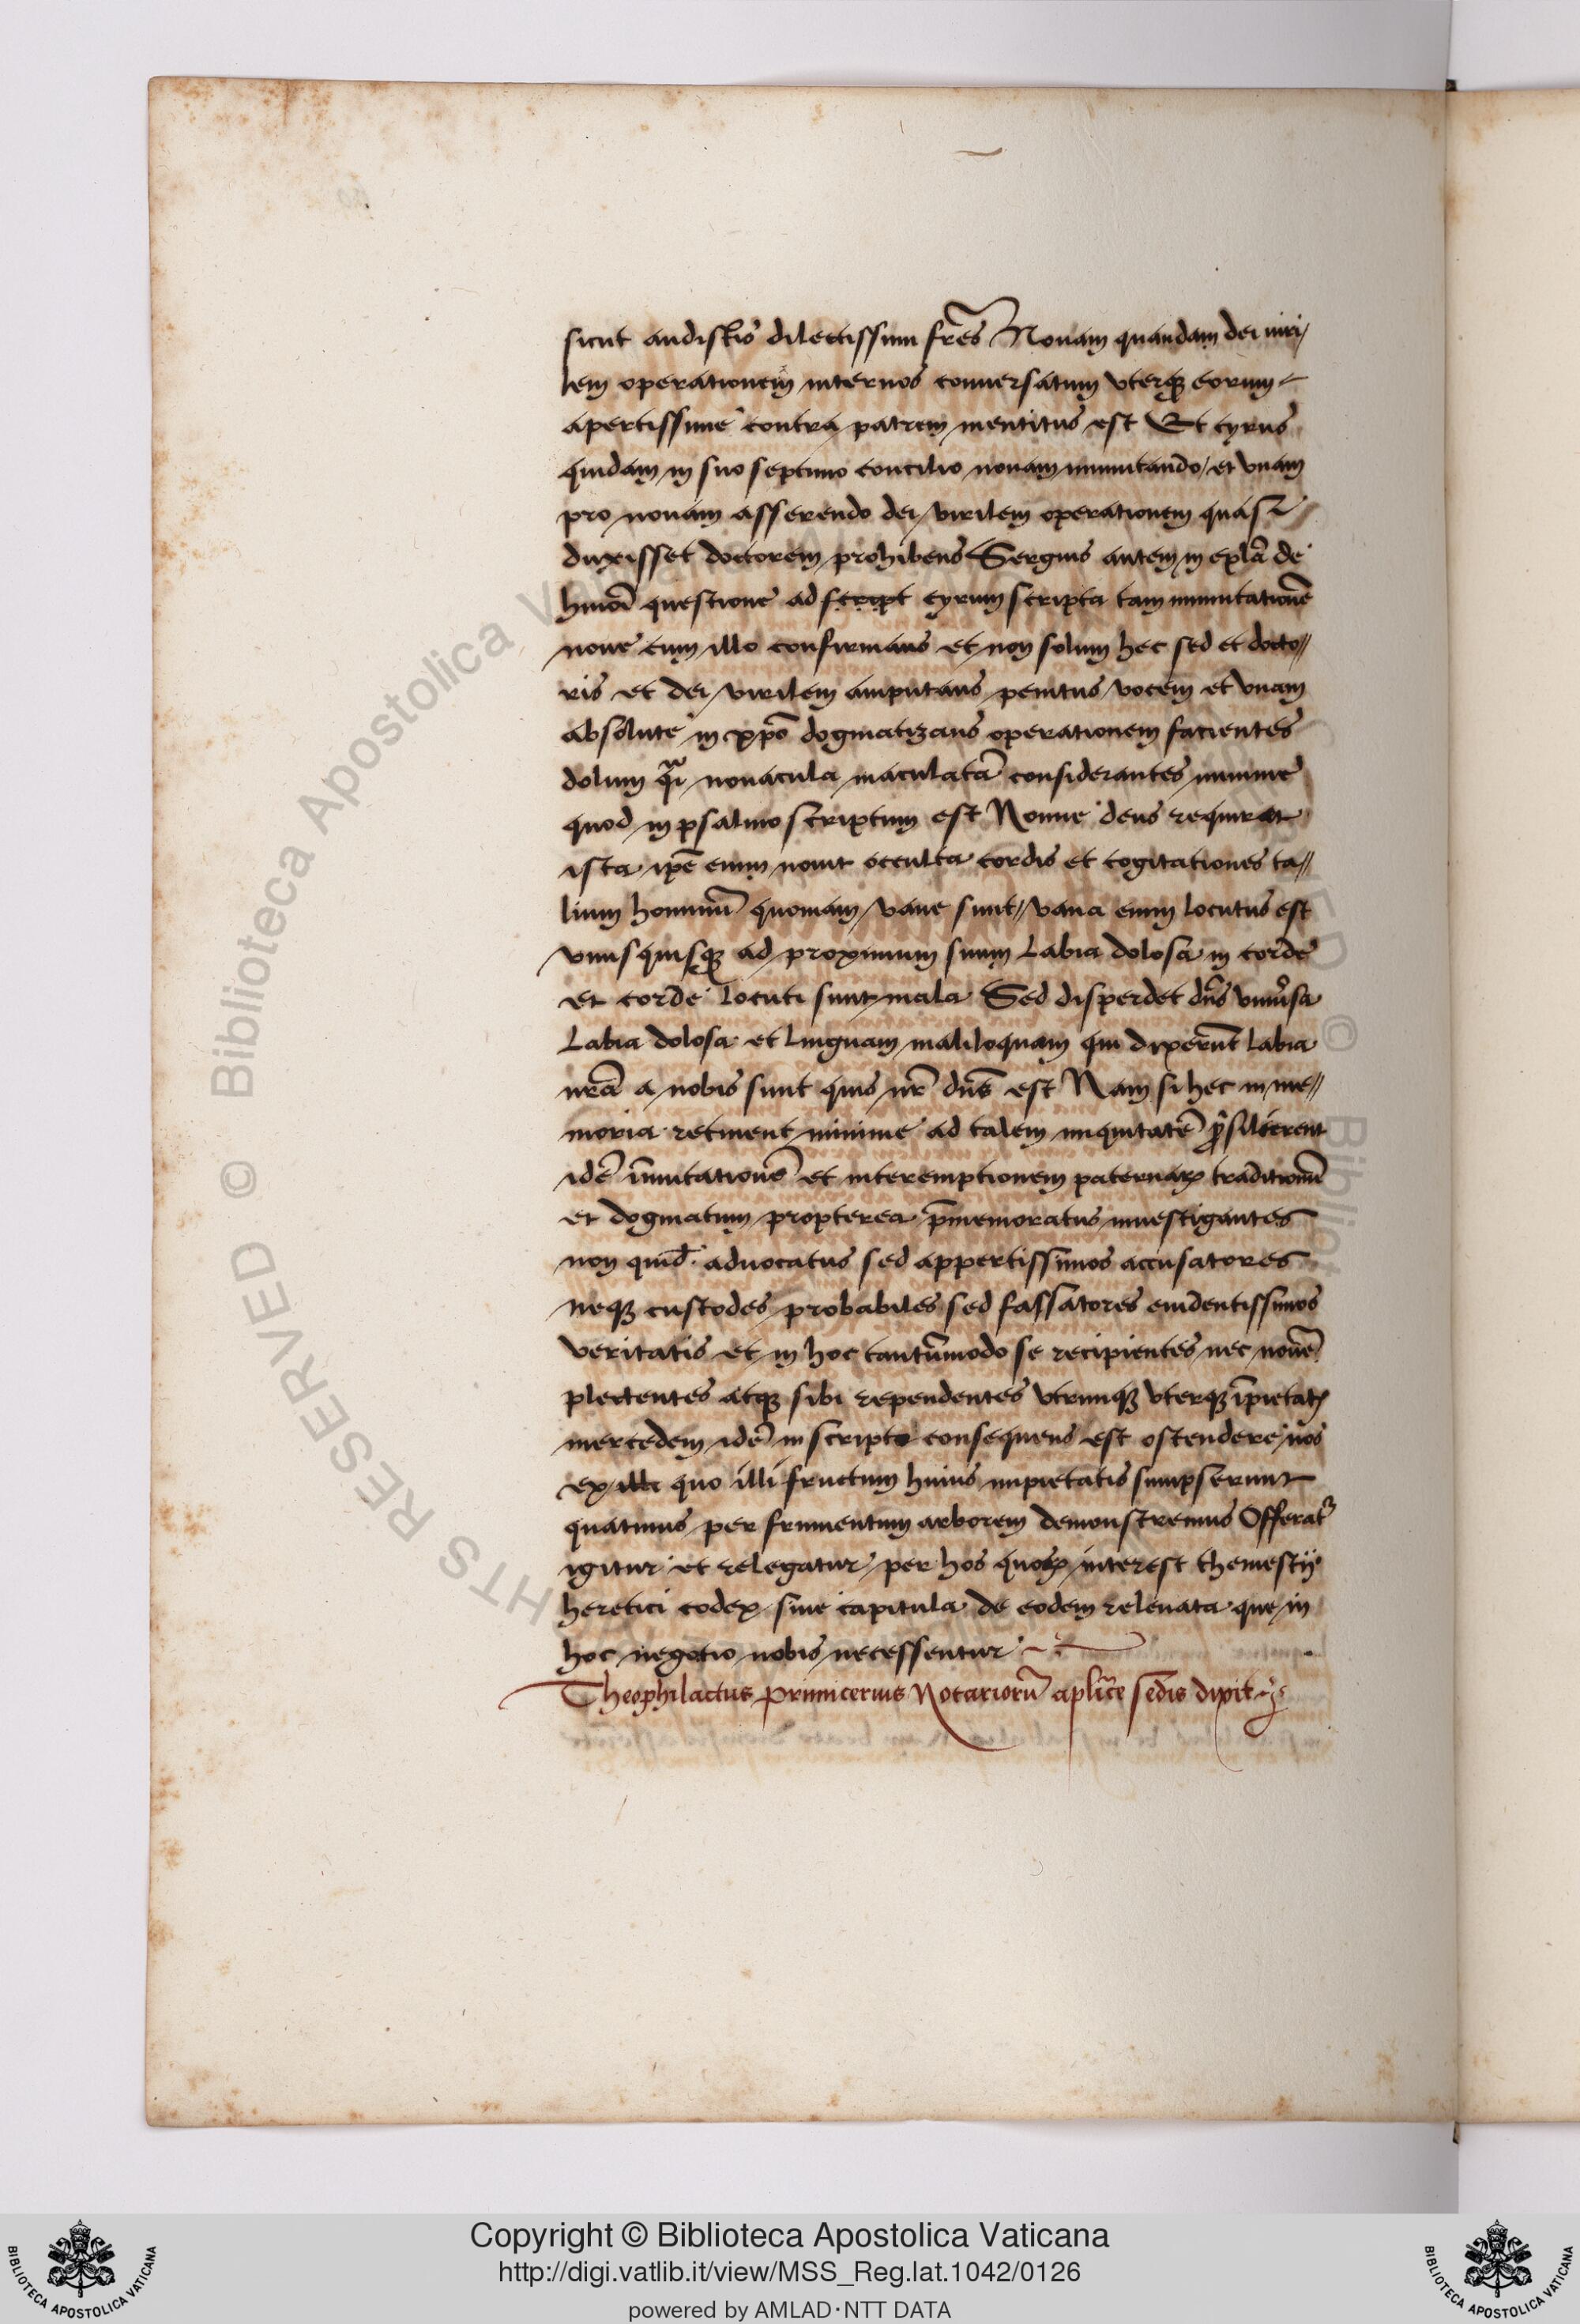 sicut audistis dilectissimi fr̄es Nouam quandam dei uiri/
lem operationem internos conuersatum vterqꝫ eorum
apertissime contra patrem mentitus est Et cyrus
quidam in suo septimo concilio nouam inmutando/ et vnam
pro nouam asserendo dei virilem operationem quasi
duxisset doctorem prohibens Sergius autem in epl̄a de
hmōi questione ad script cyrum scripta tam inmutationē
noue cum illo confirmans et non solum hec sed et docto//
ris et dei virilem amputans penitus vocem et vnam
absolute in xp̄o dogmatizans operationem facientes
dolum nouacula maculatā considerantes minime
quod in psalmo scriptum est Nonne deus requirat
ista ip̄e enim nouit occulta cordis et cogitationes ta//
lium hominū quoniam vane sunt// vana enim locutus est
vnusquisqꝫ ad proximum suum Labia dolosa in corde
et corde locuti sunt mala Sed disperdet dn̄s vniu̾sa
Labia dolosa et Linguam maliloquam qui dixerūt labia
nr̄a a nobis sunt quis nr̄ dn̄s est Nam si hec in me//
moria retinent minime ad talem iniquitatē ꝓsilierent
idē īmutationē et interemptionem paternaꝝ traditionū
et dogmatum propterea p̄memoratus inuestigantes
non quid̄ aduocatus sed appertissimos accusatores
neqꝫ custodes probabiles sed fassatores euidentissimos
veritatis et in hoc tantūmodo se recipientes nec nouē
plectentes atqꝫ sibi rependentes vtrunqꝫ vterqꝫ īpietatꝭ
mercedem idē in scripto consequens est ostendere nos
ex illi quo illi fructum huius impietatis sumpserunt
quatinus per frumentum arborem demonstremus Offerat᷑
igitur et relegatur per hos quoꝝ interest themestij
heretici codex siue capitula de eodem releuata que in
hoc negotio nobis necessentur
Theophilactus primicerius Notariorū aplice sedis dixit
Copyright © Biblioteca Apostolica Vaticana
http://digi.vatlib.it/view/MSS_Reg.lat.1042/0126
powered by AMLAD·NTT DATA